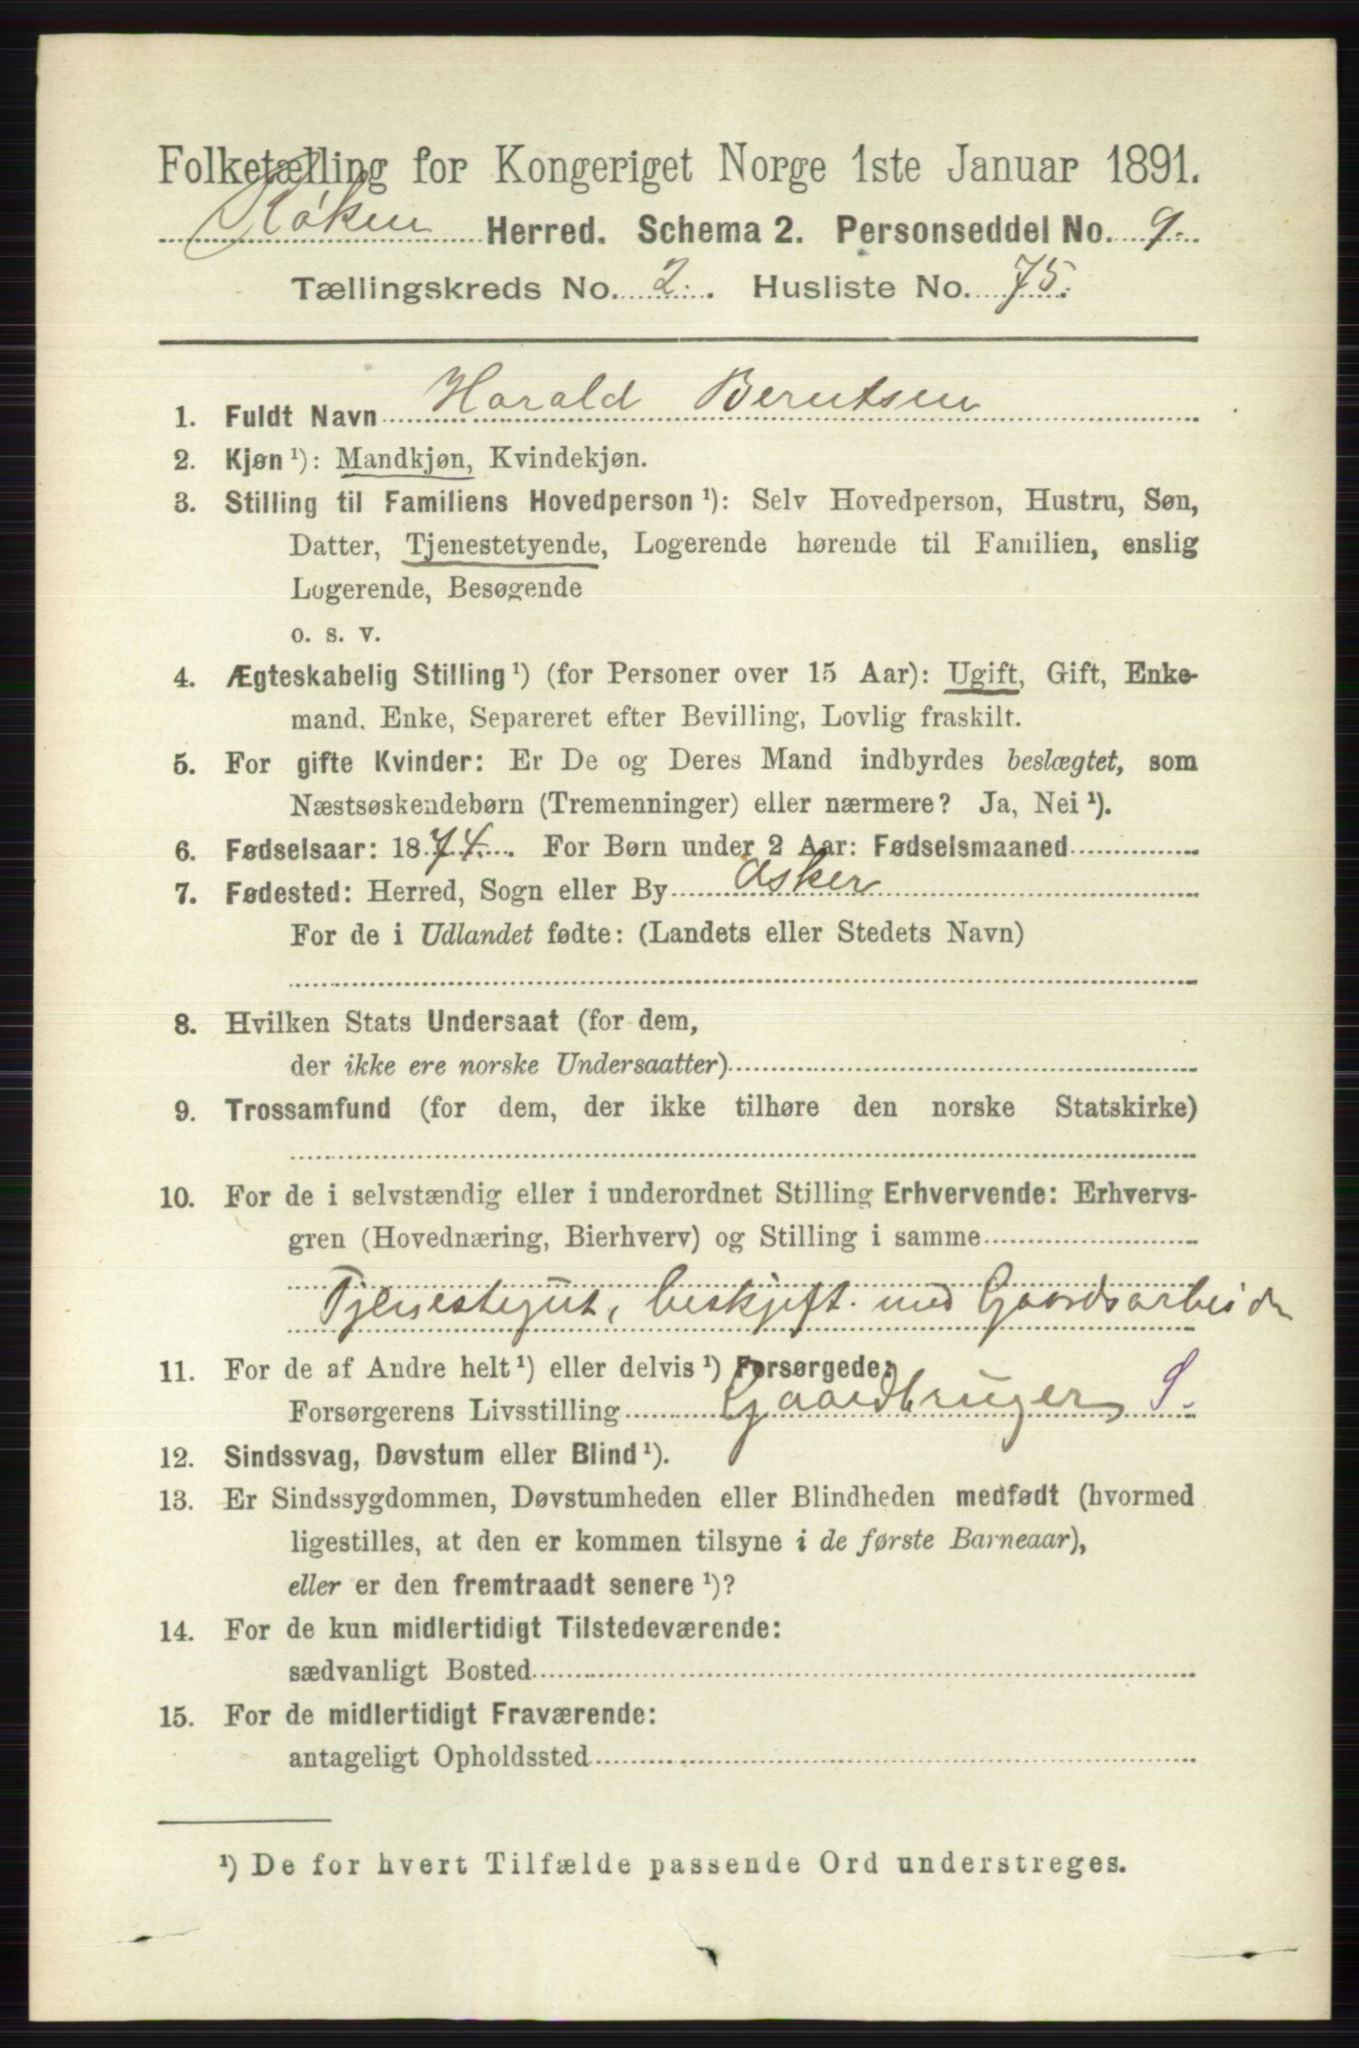 Folketælling for Kongeriget Norge 1ste Januar 1891.
Røken Herred. Schema 2. Personseddel No. 9.
Tællingskreds No. 2. Husliste No. 75.
1. Fuldt Navn Harald Berntsen
2. Kjøn ¹): Mandkjøn, Kvindekjøn.
3. Stilling til Familiens Hovedperson ¹): Selv Hovedperson, Hustru, Søn,
Datter, Tjenestetyende, Logerende hørende til Familien, enslig
Logerende, Besøgende
o. s. v.
4. Ægteskabelig Stilling ¹) (for Personer over 15 Aar): Ugift, Gift, Enke-
mand. Enke, Separeret efter Bevilling, Lovlig fraskilt.
5. For gifte Kvinder: Er De og Deres Mand indbyrdes beslægtet, som
Næstsøskendebørn (Tremenninger) eller nærmere? Ja, Nei ¹).
6. Fødselsaar: 1874. For Børn under 2 Aar: Fødselsmaaned
7. Fødested: Herred, Sogn eller By Asker
For de i Udlandet fødte: (Landets eller Stedets Navn)
8. Hvilken Stats Undersaat (for dem,
der ikke ere norske Undersaatter)
9. Trossamfund (for dem, der ikke tilhøre den norske Statskirke)
10. For de i selvstændig eller i underordnet Stilling Erhvervende: Erhvervs-
gren (Hovednæring, Bierhverv) og Stilling i samme
Tjenestegut, beskjeft. med Gaardsarbeide
11. For de af Andre helt ¹) eller delvis ¹) Forsørgede:
Forsørgerens Livsstilling Gaardbruger S.
12. Sindssvag, Døvstum eller Blind ¹).
13. Er Sindssygdommen, Døvstumheden eller Blindheden medfødt (hvormed
ligestilles, at den er kommen tilsyne i de første Barneaar),
eller er den fremtraadt senere ¹)?
14. For de kun midlertidigt Tilstedeværende:
sædvanligt Bosted
15. For de midlertidigt Fraværende:
antageligt Opholdssted
¹) De for hvert Tilfælde passende Ord understreges.